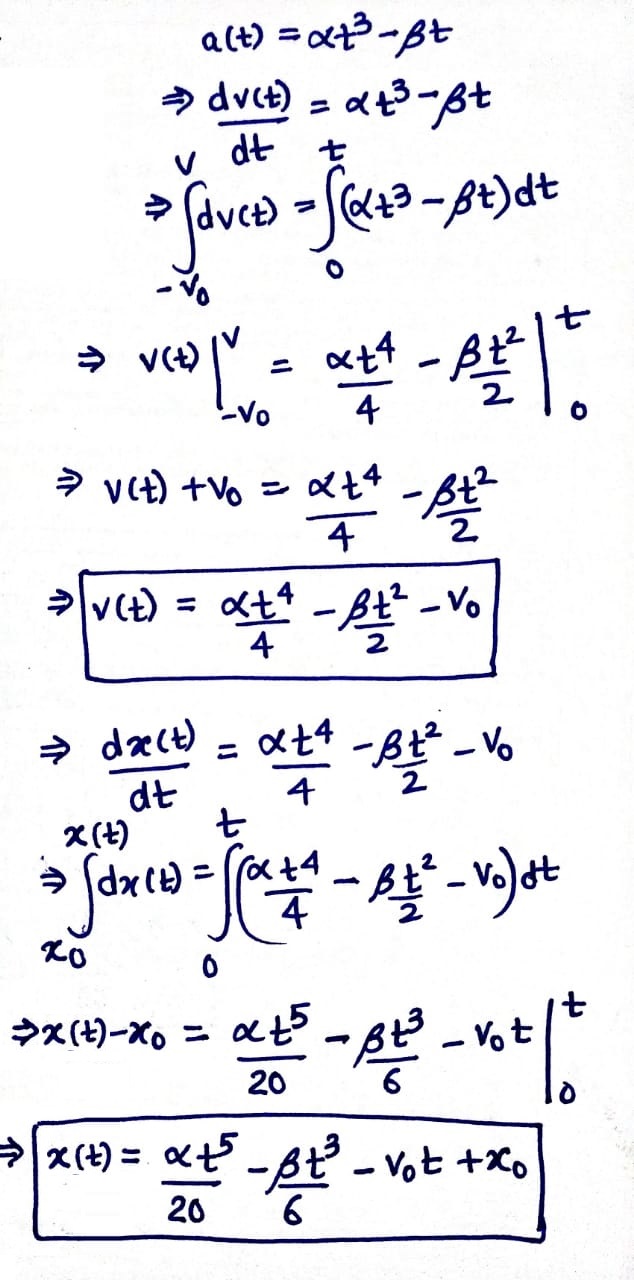 a(t) = αt³ - βt
⇒ dv(t)/dt = αt³ - βt
⇒ ∫_{-v₀}^{v} dv(t) = ∫_{0}^{t} (αt³ - βt) dt
⇒ v(t) |_{-v₀}^{v} = αt⁴/4 - βt²/2 |_{0}^{t}
⇒ v(t) + v₀ = αt⁴/4 - βt²/2
⇒ v(t) = αt⁴/4 - βt²/2 - v₀
⇒ dx(t)/dt = αt⁴/4 - βt²/2 - v₀
⇒ ∫_{x₀}^{x(t)} dx(t) = ∫_{0}^{t} (αt⁴/4 - βt²/2 - v₀) dt
⇒ x(t) - x₀ = αt⁵/20 - βt³/6 - v₀t |_{0}^{t}
⇒ x(t) = αt⁵/20 - βt³/6 - v₀t + x₀